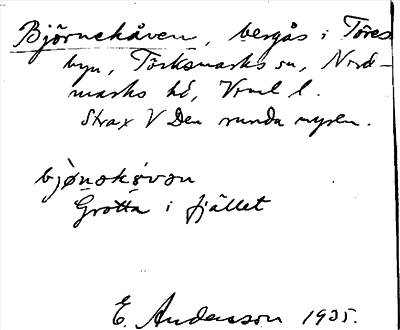 Björnehåven, bergås i Töres
byn, Törksmarks sn, Nord-
marks hd, Vrml l.
Strax V Den runda mysen.
bjønəkǿvən
Grotta i fjället
E. Andersson 1935.